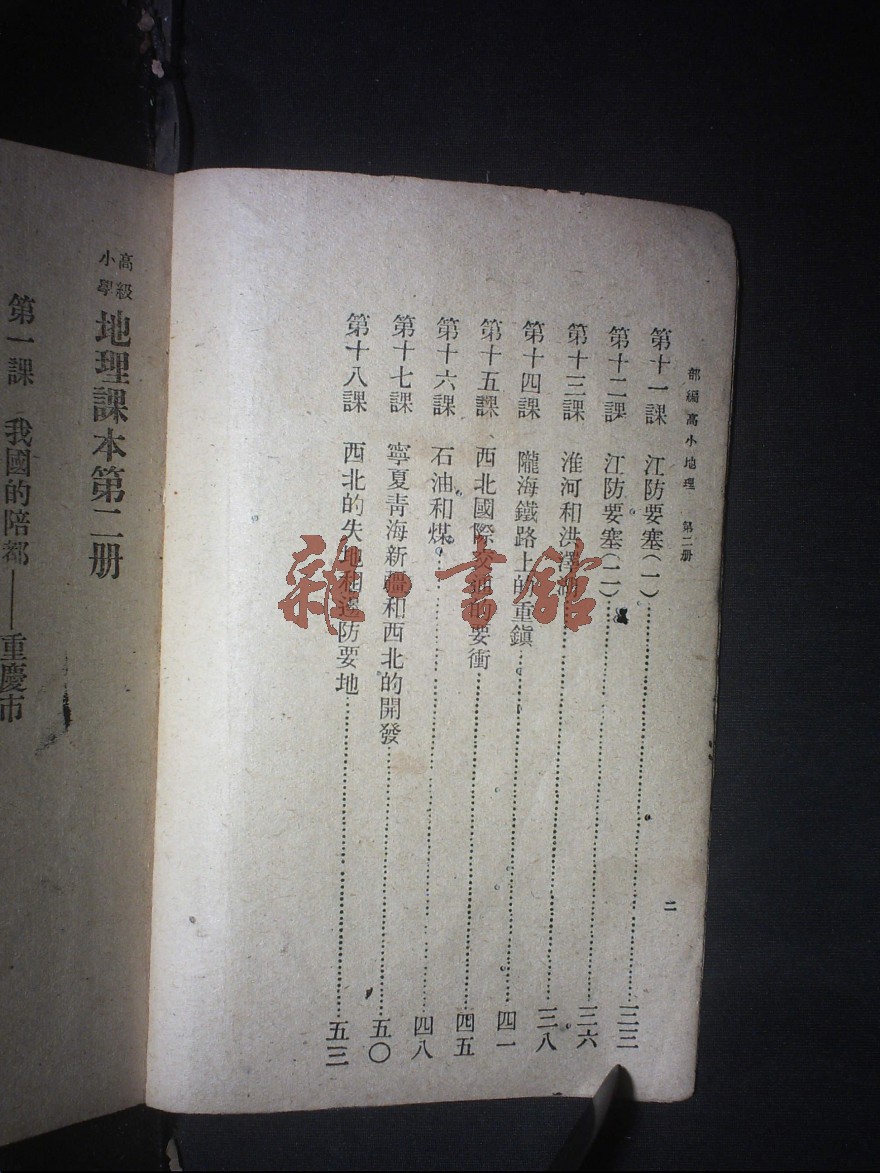 部編高小地理 第二册
第十一課 江防要塞(一)……三三
第十二課 江防要塞(二)……三六
第十三課 淮河和洪澤湖……三八
第十四課 隴海鐵路上的重鎮……四一
第十五課 西北國際交通的要衝……四五
第十六課 石油和煤……四八
第十七課 寧夏青海新疆和西北的開發……五〇
第十八課 西北的失地和邊防要地……五三
二
高級小學 地理課本第二册
第一課 我國的陪都——重慶市
雜·書館